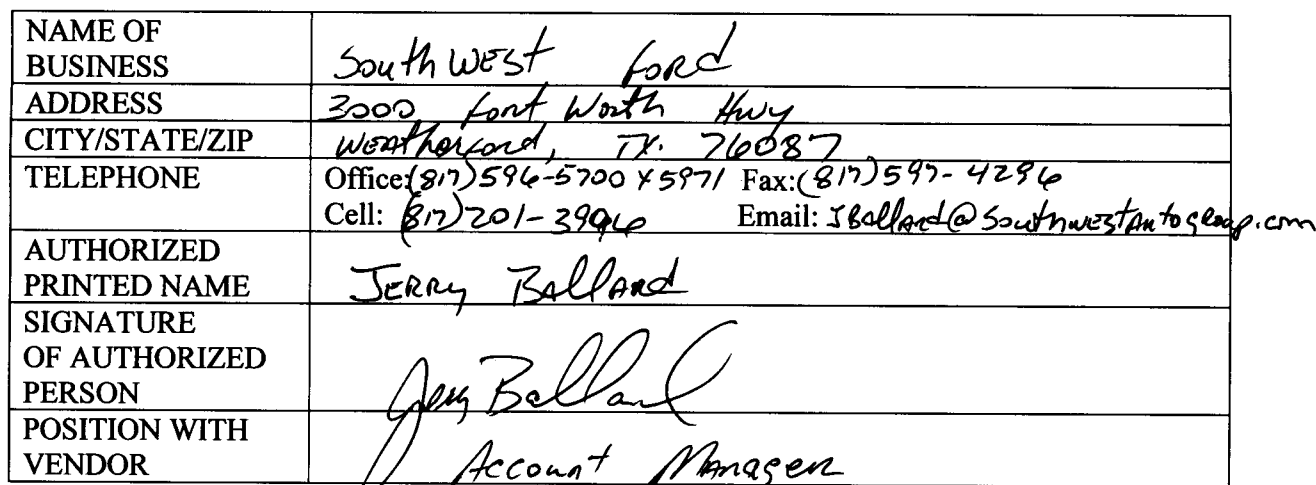 NAME OF
BUSINESS
SouthWEST Ford
ADDRESS
3000 Fort Worth Hwy
CITY/STATE/ZIP
WEAtherford, TX. 76087
TELEPHONE
Office:(817)596-5700 X5971 Fax:(817)597-4296
Cell: (817)201-3996 Email: JBallard@SouthwestAutogroup.com
AUTHORIZED
PRINTED NAME
JERRy BAllARd
SIGNATURE
OF AUTHORIZED
PERSON
Jerry Ballard
POSITION WITH
VENDOR
Account MANAgER